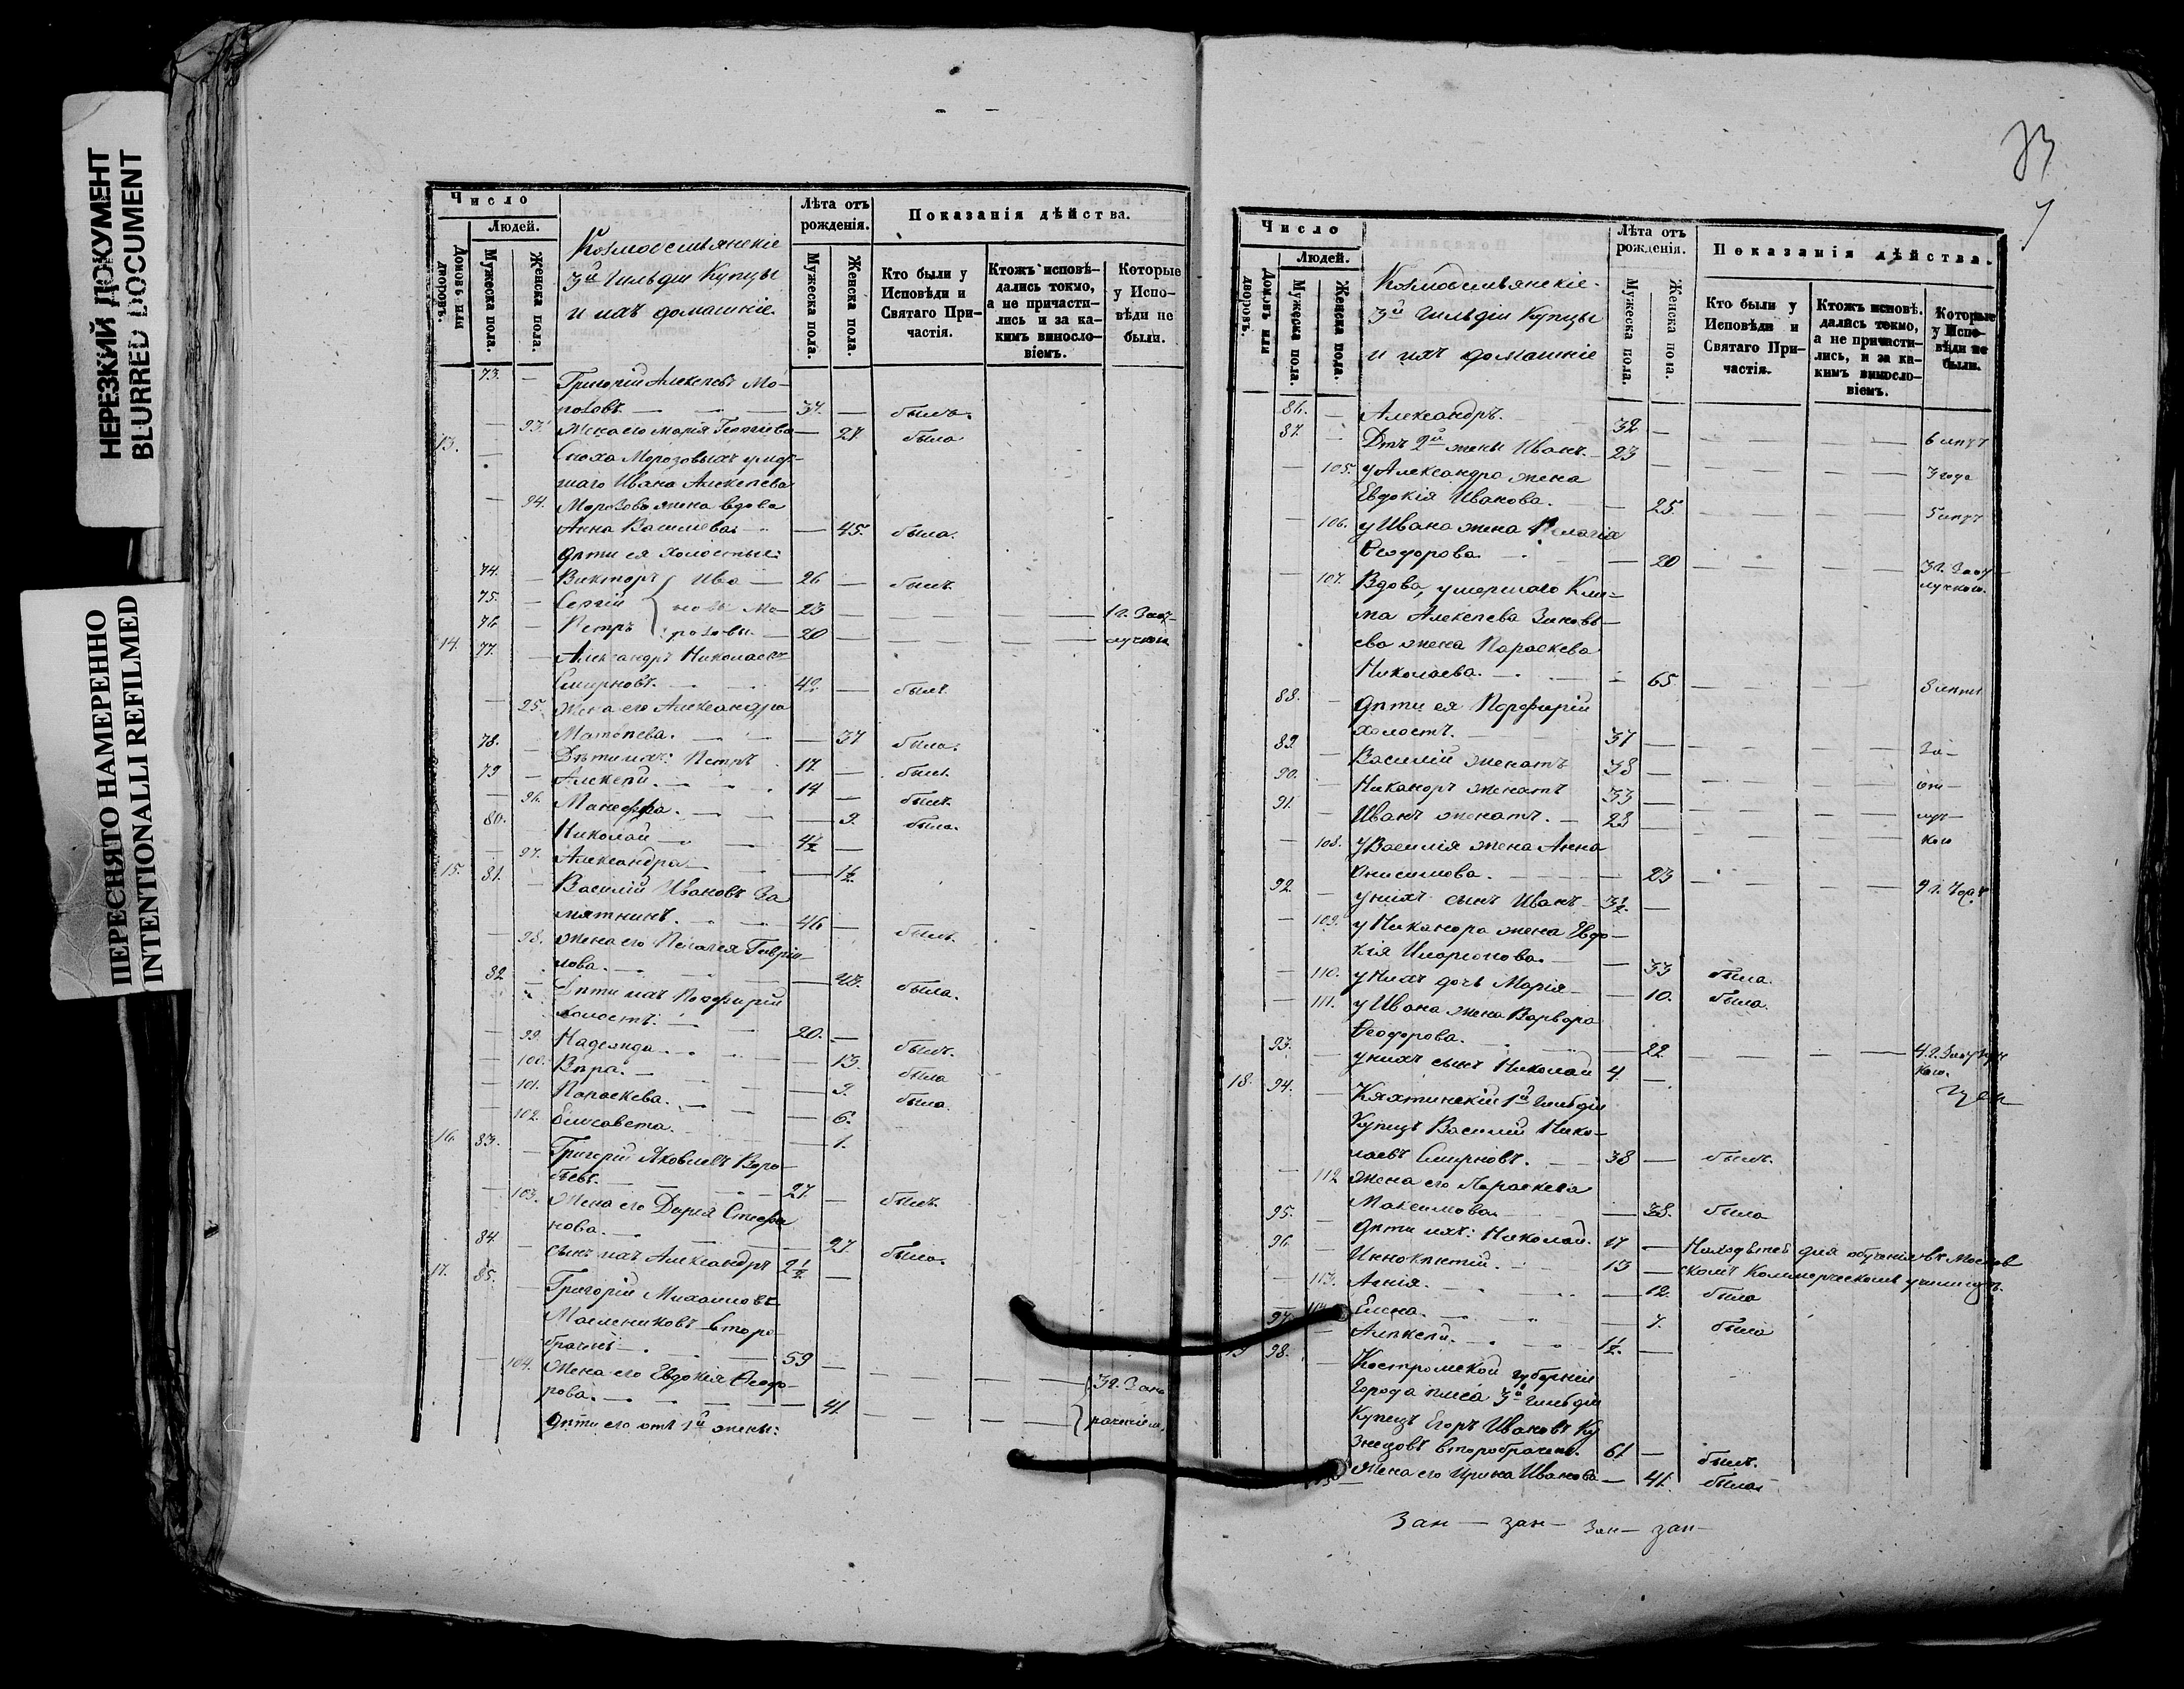 НЕРЕЗКИЙ ДОКУМЕНТ
BLURRED DOCUMENT
ПЕРЕСНЯТО НАМЕРЕННО
INTENTIONALLI REFILMED
Число
Людей.
Домовъ или дворовъ.
Мужеска пола.
Женска пола.
Козмодемьянскіе
3й Гильдіи Купцы
и ихъ домашніе.
Лѣта отъ рожденія.
Мужеска пола.
Женска пола.
Показанія дѣйства.
Кто были у Исповѣди и Святаго При-частія.
Ктожъ исповѣ-дались токмо, а не причасти-лись и за ка-кимъ винословіемъ.
Которые у Испо-вѣди не были.
73. — Григорій Алексѣевъ Мо-
розовъ. — 37. — былъ.
— 93. Жена его Марія Георгіева — 27. была
13. — Сноха Морозовыхъ умер-
шаго Ивана Алексѣева
— 94. Морозова жена вдова
Анна Васильева. — 45. была.
Дѣти ея холостые:
74. — Викторъ Ива — 26 — былъ
75. — Сергій новы Мо- 23 — 1 г. Заот-
76. — Петръ розовы. — 20 — лучкою
14. 77. — Александръ Николаевъ
Смирновъ. — 42. — былъ.
— 95. Жена его Александра
Матвѣева. — 37 была.
78. — Дѣти ихъ: Петръ 17 — былъ.
79 — Алексѣй. 14 — былъ.
— 96. Манефа. — 9. была.
80. — Николай 4½ —
— 97. Александра — 1½
15. 81. — Василій Ивановъ За
мятнинъ. 46 — былъ.
— 98. Жена его Пелагея Гаврі-
лова. — 43. была.
82 — Дѣти ихъ Порфирій
холостъ. 20. — былъ.
— 99. Надежда. — 13. была
— 100. Вѣра. — 9. была.
— 101. Параскева. — 6.
— 102. Елисавета. — 1.
16. 83. — Григорій Яковлевъ Воро-
бьевъ. 27. — былъ.
— 103. Жена его Дарья Стефа
нова. — 27. была.
84. — сынъ ихъ Александръ 2½ —
17. 85. — Григорій Михаиловъ
Масленниковъ второ-
брачный 59 —
— 104. Жена его Евдокія Ѳеодо-
рова. — 41. 3 г.
Дѣти его отъ 1й жены:
33
Число
Людей.
Домовъ или дворовъ.
Мужеска пола.
Женска пола.
Козмодемьянскіе.
3й Гильдіи Купцы
и ихъ домашніе
Лѣта отъ рожденія.
Мужеска пола.
Женска пола.
Показанія дѣйства.
Кто были у Исповѣди и Святаго При-частія.
Ктожъ исповѣ-дались токмо, а не причасти-лись, и за ка-кимъ винословіемъ.
Которые у Испо-вѣди не были.
86. — Александръ. 32 — 6 лѣтъ
87. — Отъ 2й жены Иванъ. 23 — 3 года
— 105. у Александра жена
Евдокія Иванова. — 25. 5 лѣтъ
— 106. у Ивана жена Пелагія
Ѳеодорова. — 20 3 г. Заот-
лучкою.
— 107. Вдова, умершаго Кли-
ма Алексѣева Зиновь-
ева жена Параскева
Николаева. — 65. 8 лѣтъ
88. — Дѣти ея Порфирій
холостъ. 37 — За-
89 — Василій женатъ 38 — от-
90. — Никаноръ женатъ 33 — луч-
91. — Иванъ женатъ. 23 — кою
— 108. у Василія жена Анна
Онисимова. — 23
92. — у нихъ сынъ Иванъ 3½ —
— 109. у Никанора жена Евдо-
кія Иларіонова. — 33 была.
— 110. у нихъ дочь Марія — 10. была.
— 111. у Ивана жена Варвара
Ѳеодорова. — 22 4 г. Заотлуч-
кою.
93. — у нихъ сынъ Николай 4 —
18. 94. — Кяхтинскій 1й Гильдіи
Купецъ Василій Нико-
лаевъ Смирновъ. 38 — былъ.
— 112 Жена его Параскева
Максимова. — 38. была
95. — Дѣти ихъ: Николай. 17 — Находятся для обученія въ Москов
96. — Иннокентій. 13 — скомъ Коммерческомъ училищѣ.
— 113. Агнія. — 12. была
— 114. Елена. — 7. была
97. — Алексѣй. 1½. —
19 98. — Костромской губерніи
Города Плеса 3й Гильдіи
Купецъ Егоръ Ивановъ Ку
знецовъ второбрачн. 61 — былъ.
115 Жена его Ирина Иванова — 41. была
Зан — зан — Зан — зан —